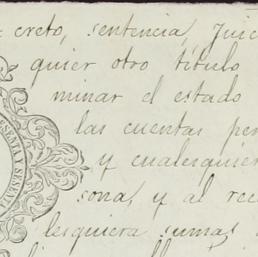 creto, sentencia, Juic
quier otro título
minar el estado
las cuentas pen
y cualesquier
sona, y al rec
lesquiera sumas
SESENTA Y SESENTA